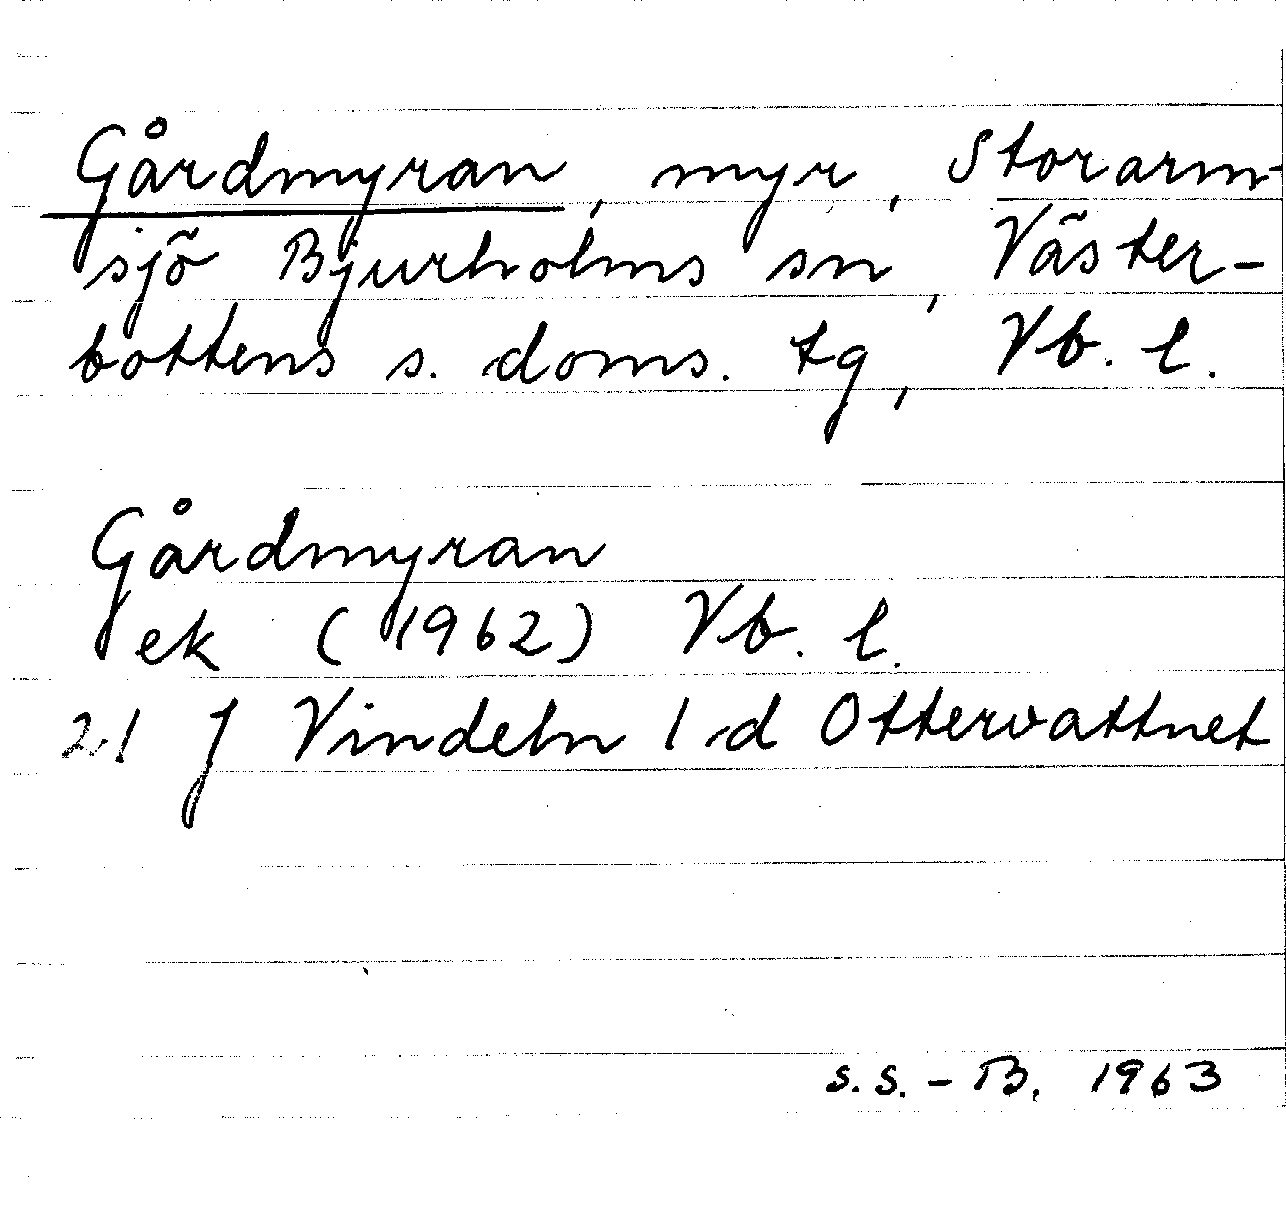 Gårdmyran, myr, Storarm-
sjö Bjurholms sn, Väster-
bottens s. doms. tg, Vb. l.
Gårdmyran
ek (1962) Vb. l.
21 J Vindeln 1 d Ottervattnet
S.S.-B. 1963